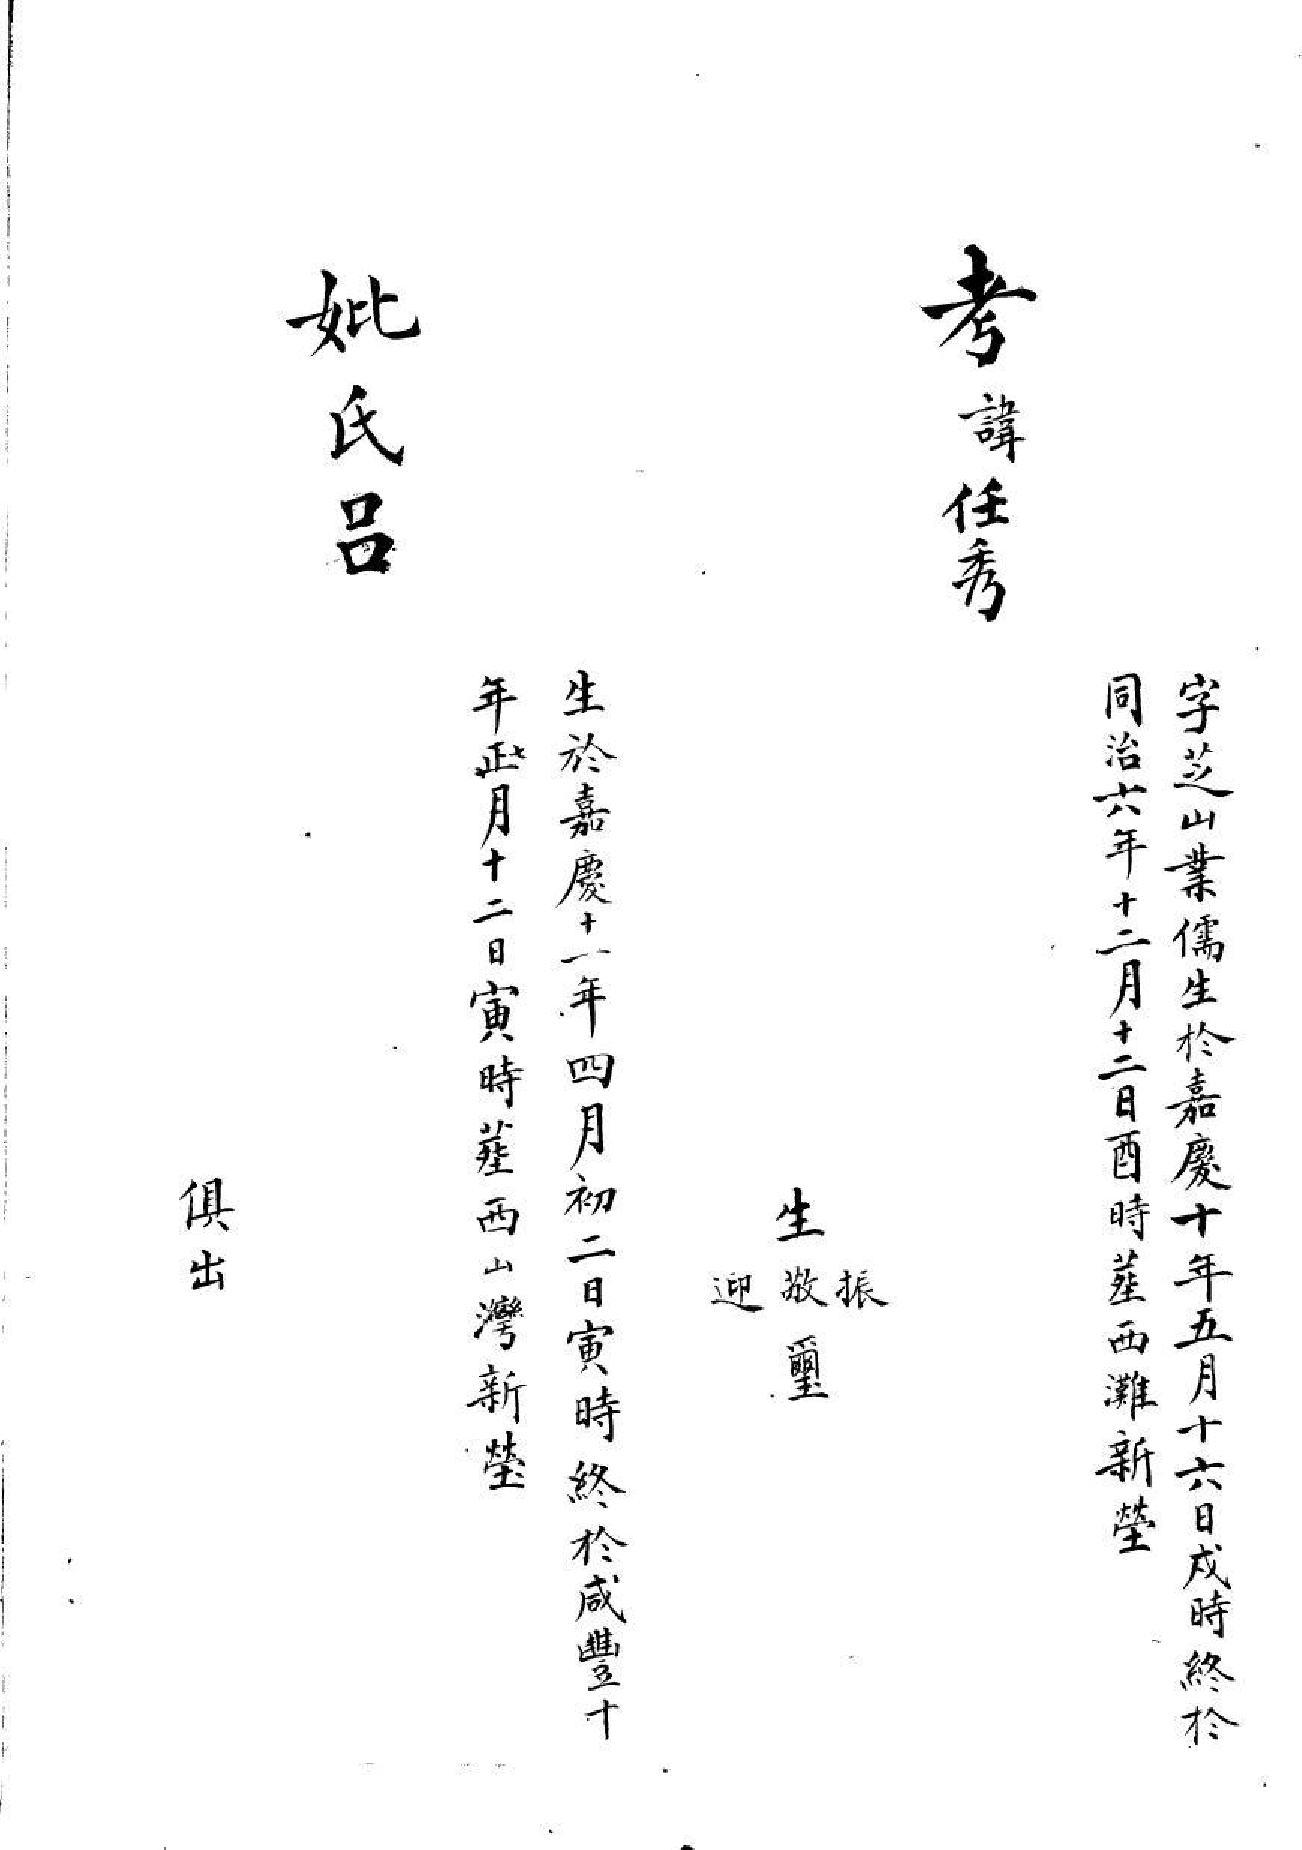 考諱任秀
字芝山業儒生於嘉慶十年五月十六日戌時終於
同治六年十二月十二日酉時塟西灘新塋
生
振
敬
迎
璽
妣氏呂
生於嘉慶十一年四月初二日寅時終於咸豐十
年正月十二日寅時塟西山灣新塋
俱出